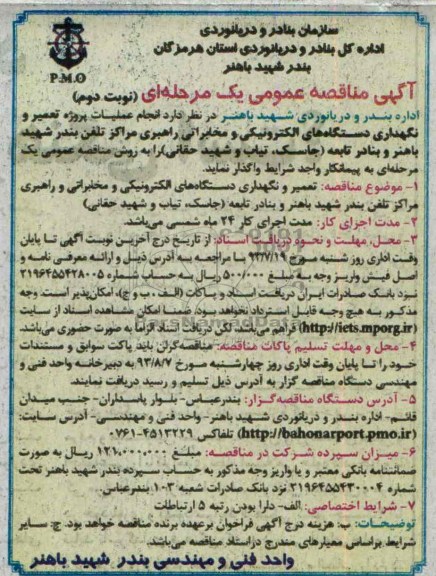 سازمان بنادر و دریانوردی
اداره کل بنادر و دریانوردی استان هرمزگان
بندر شهید باهنر
P.M.O
آگهی مناقصه عمومی یک مرحله‌ای (نوبت دوم)
اداره بندر و دریانوردی شهید باهنر در نظر دارد انجام عملیات پروژه تعمیر و
نگهداری دستگاه‌های الکترونیکی و مخابراتی راهبری مراکز تلفن بندر شهید
باهنر و بنادر تابعه (جاسک، تیاب و شهید حقانی) را به روش مناقصه عمومی یک
مرحله‌ای به پیمانکار واجد شرایط واگذار نماید.
۱- موضوع مناقصه: تعمیر و نگهداری دستگاه‌های الکترونیکی و مخابراتی و راهبری
مراکز تلفن بندر شهید باهنر و بنادر تابعه (جاسک، تیاب و شهید حقانی)
۲- مدت اجرای کار: مدت اجرای کار ۲۴ ماه شمسی می‌باشد.
۳- محل، مهلت و نحوه دریافت اسناد: از تاریخ درج آخرین نوبت آگهی تا پایان
وقت اداری روز شنبه مورخ ۹۳/۷/۱۹ با مراجعه به آدرس ذیل و ارائه معرفی نامه و
اصل فیش واریز وجه به مبلغ ۵۰۰/۰۰۰ ریال به حساب شماره ۲۱۹۶۴۵۵۴۲۸۰۰۵
نزد بانک صادرات ایران دریافت اسناد و پاکات (الف، ب و ج)، امکان‌پذیر است. وجه
مذکور به هیچ وجه قابل استرداد نخواهد بود. ضمنا امکان مشاهده اسناد از سایت
(http://iets.mporg.ir) فراهم می‌باشد. لکن دریافت اسناد الزاما به صورت حضوری می‌باشد.
۴- محل و مهلت تسلیم پاکات مناقصه: مناقصه‌گران باید پاکت سوابق و مستندات
خود را تا پایان وقت اداری روز چهارشنبه مورخ ۹۳/۸/۷ به دبیرخانه واحد فنی و
مهندسی دستگاه مناقصه گزار به آدرس ذیل تسلیم و رسید دریافت نمایند.
۵- آدرس دستگاه مناقصه‌گزار: بندرعباس- بلوار پاسداران- جنب میدان
قائم- اداره بندر و دریانوردی شهید باهنر- واحد فنی و مهندسی- آدرس سایت:
(http://bahonarport.pmo.ir) تلفاکس ۴۵۱۳۲۲۹-۰۷۶۱
۶- میزان سپرده شرکت در مناقصه: مبلغ ۱۲۱,۰۰۰,۰۰۰ ریال به صورت
ضمانتنامه بانکی معتبر و یا واریز وجه مذکور به حساب سپرده بندر شهید باهنر تحت
شماره ۲۱۹۶۴۵۵۴۳۰۰۰۴ نزد بانک صادرات شعبه ۱۰۳ بندرعباس.
۷- شرایط اختصاصی: الف- دارا بودن رتبه ۵ ارتباطات
توضیحات: ب: هزینه درج آگهی فراخوان برعهده برنده مناقصه خواهد بود. ج: سایر
شرایط براساس معیارهای مندرج در اسناد مناقصه می‌باشد.
واحد فنی و مهندسی بندر شهید باهنر